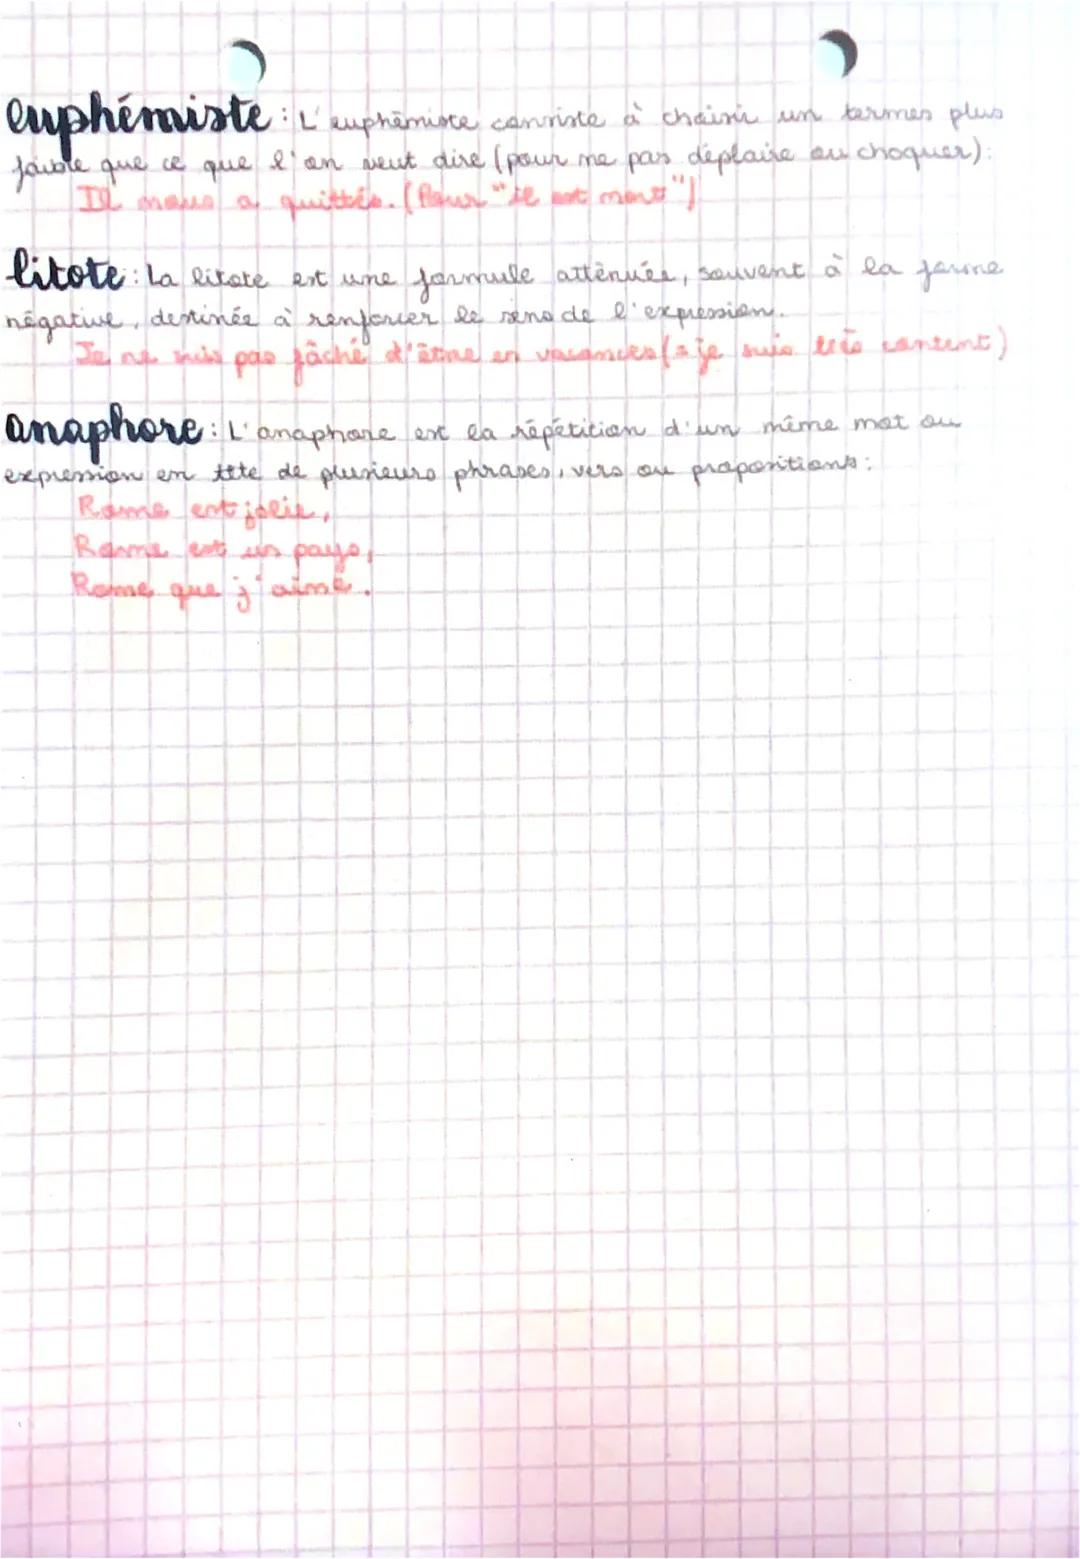 euphémiste : L'euphémiste consiste à choisir un termes plus
faible que ce que l'on veut dire (pour ne pas déplaire ou choquer) :
Il nous a quittés. (Pour "il est mort")
litote : La litote est une formule atténuée, souvent à la forme
négative, destinée à renforcer le sens de l'expression.
Je ne suis pas fâché d'être en vacances (= je suis très content)
anaphore : L'anaphore est la répétition d'un même mot ou
expression en tête de plusieurs phrases, vers ou propositions :
Rome est jolie,
Rome est un pays,
Rome que j'aime.